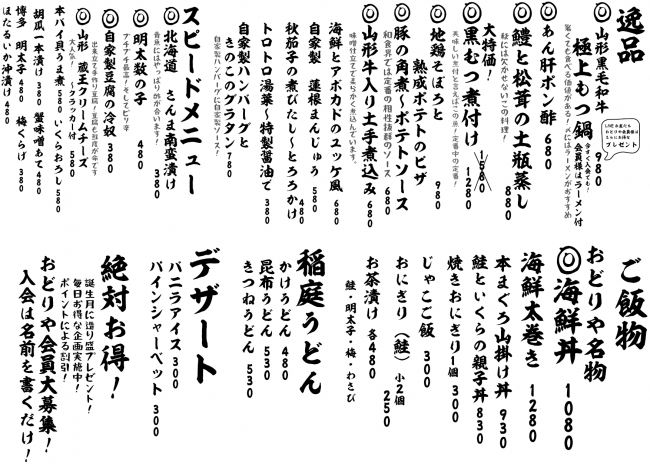 逸品
◎山形黒毛和牛
極上もつ鍋 980
今すぐ入会でも!
会員様はラーメン付
驚くべき価値がある!〆にはラーメンがおすすめ
LINEお友だち
おどりや会員様は
さらにお得な
プレゼント
◎あん肝ポン酢 680
◎鱧と松茸の土瓶蒸し 880
秋には欠かせないこの料理!
大特価!
◎黒むつ煮付け 1580 1280
美味しい煮付と言えばこの魚!定番中の定番!
地鶏そぼろと
熟成ポテトのピザ 980
◎豚の角煮~ポテトソース 680
和食界では定番の相性抜群のソース
◎山形牛入り土手煮込み 680
味噌仕立てでまろやかく煮込んでいます。
海鮮とアボカドのユッケ風 680
自家製 蓮根まんじゅう 580
秋茄子の煮びたし~とろろかけ 480
トロトロ湯葉~特製醤油で 380
自家製ハンバーグと
きのこのグラタン 780
自家製ハンバーグに自家製ソース!
スピードメニュー
◎北海道 さんま南蛮漬け 380
意外にもやっぱり酢が合います!
◎明太数の子 480
プチプチ最高!そしてピリ辛
◎自家製豆腐の冷奴 380
出来立て手作り豆腐!豆腐も鮮度が命です
◎山形 蔵王クリームチーズ
大人気! ~クラッカー付 580
本バイ貝うま煮 580 いくらおろし 580
胡瓜一本漬け 380 蟹味噌あて 480
博多 明太子 480 梅くらげ 380
ほたるいか沖漬け 480
ご飯物
おどりや名物
◎海鮮丼 1080
海鮮太巻き 1280
本まぐろ山掛け丼 930
鮭といくらの親子丼 830
焼きおにぎり1個 300
じゃこご飯 300
おにぎり(鮭)小2個 250
お茶漬け 各480
鮭・明太子・梅・わさび
稲庭うどん
かけうどん 480
昆布うどん 530
きつねうどん 530
デザート
バニラアイス 300
パインシャーベット 300
絶対お得!
誕生月に造り盛プレゼント!
毎日お得な企画実施中!
ポイントによる割引!
おどりや会員大募集!
入会は名前を書くだけ!